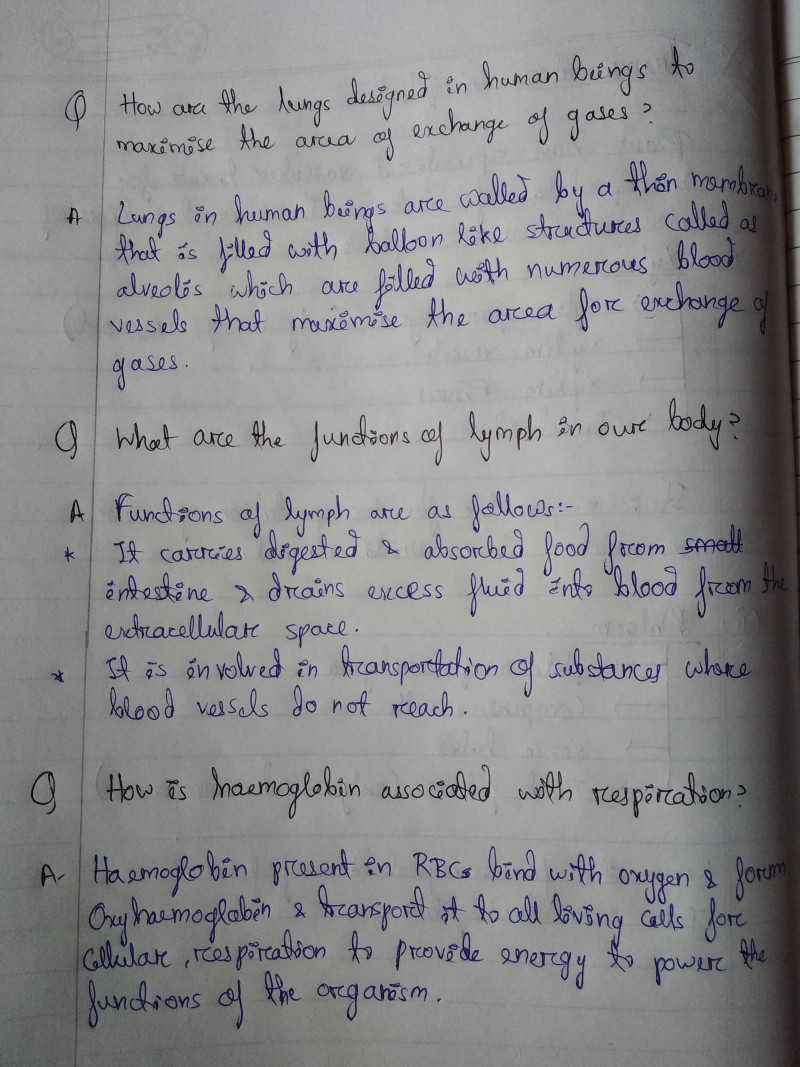 Q How are the lungs designed in human beings to
maximise the area of exchange of gases?
A Lungs in human beings are walled by a thin membrane
that is filled with balloon like structures called as
alveolis which are filled with numerous blood
vessels that maximise the area for exchange of
gases.
Q What are the functions of lymph in our body?
A Functions of lymph are as follows:-
* It carries digested & absorbed food from small
intestine & drains excess fluid into blood from the
extracellular space.
* It is involved in transportation of substances where
blood vessels do not reach.
Q How is haemoglobin associated with respiration?
A- Haemoglobin present in RBCs bind with oxygen & form
Oxyhaemoglobin & transport it to all living cells for
Cellular, respiration to provide energy to power the
functions of the organism.